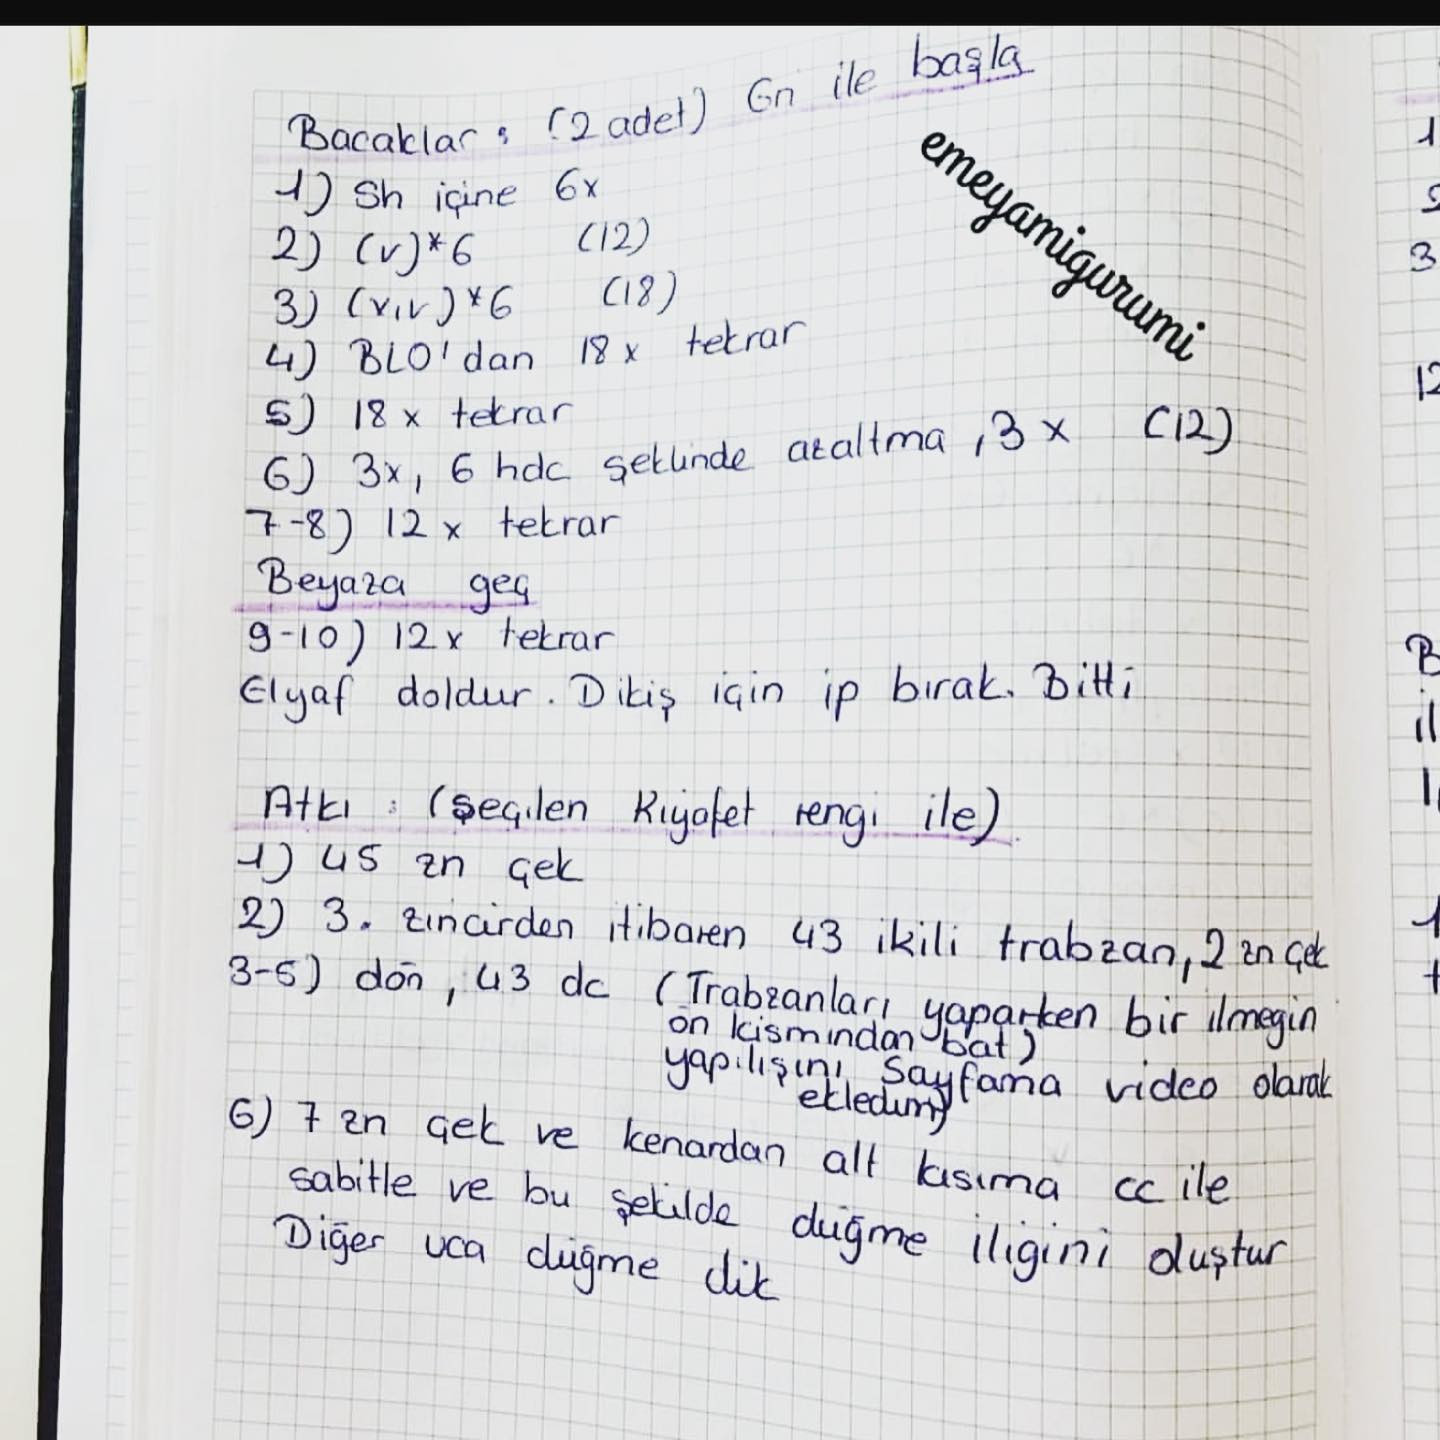 Bacaklar : (2 adet) Gri ile başla
emeyamigurumi
1) Sh içine 6x
2) (v)*6 (12)
3) (x,v)*6 (18)
4) BLO'dan 18x tekrar
5) 18x tekrar
6) 3x, 6 hdc şeklinde azaltma, 3x (12)
7-8) 12x tekrar
Beyaza geç
9-10) 12x tekrar
Elyaf doldur. Dikiş için ip bırak. Bitti
Atkı : (Seçilen Kıyafet rengi ile)
1) 45 zn çek
2) 3. zincirden itibaren 43 ikili trabzan, 2 zn çek
3-5) dön, 43 dc (Trabzanları yaparken bir ilmeğin
ön kısmından bat)
yapılışını Sayfama video olarak
ekledim)
6) 7 zn çek ve kenardan alt kısıma cc ile
sabitle ve bu şekilde düğme iliğini oluştur
Diğer uca düğme dik
1
3
12
B
il
1